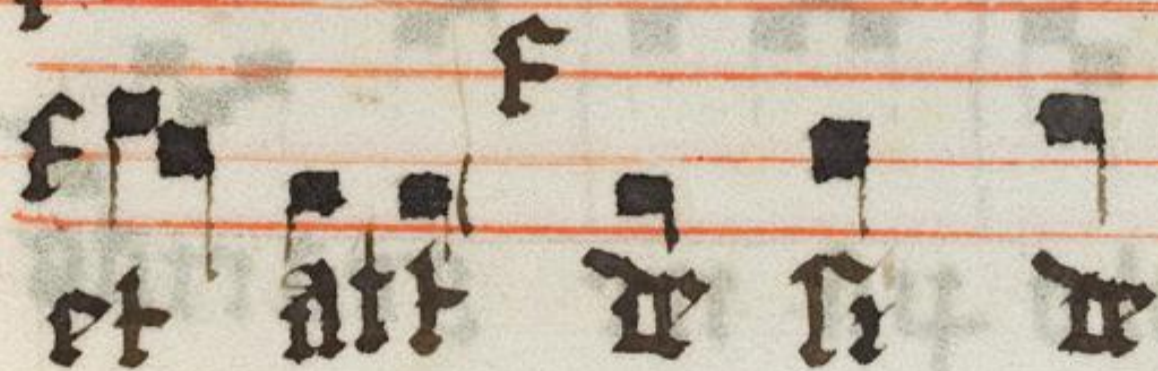 et att de si de